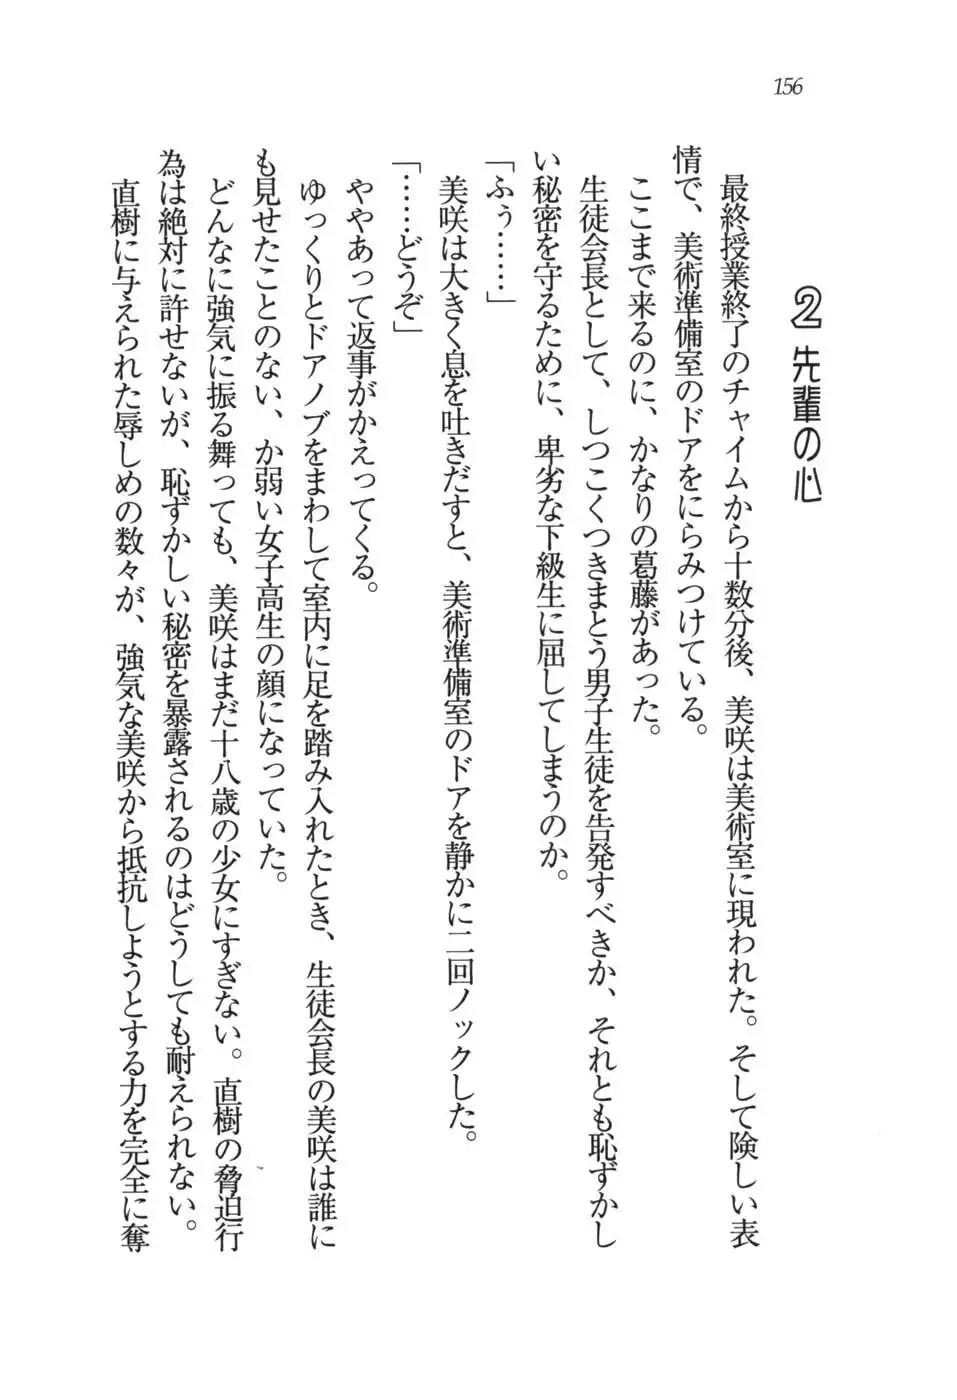 156
２ 先輩の心
最終授業終了のチャイムから十数分後、美咲は美術室に現われた。そして険しい表
情で、美術準備室のドアをにらみつけている。
ここまで来るのに、かなりの葛藤があった。
生徒会長として、しつこくつきまとう男子生徒を告発すべきか、それとも恥ずかし
い秘密を守るために、卑劣な下級生に屈してしまうのか。
「ふぅ……」
美咲は大きく息を吐きだすと、美術準備室のドアを静かに二回ノックした。
「……どうぞ」
ややあって返事がかえってくる。
ゆっくりとドアノブをまわして室内に足を踏み入れたとき、生徒会長の美咲は誰に
も見せたことのない、か弱い女子高生の顔になっていた。
どんなに強気に振る舞っても、美咲はまだ十八歳の少女にすぎない。直樹の脅迫行
為は絶対に許せないが、恥ずかしい秘密を暴露されるのはどうしても耐えられない。
直樹に与えられた辱しめの数々が、強気な美咲から抵抗しようとする力を完全に奪